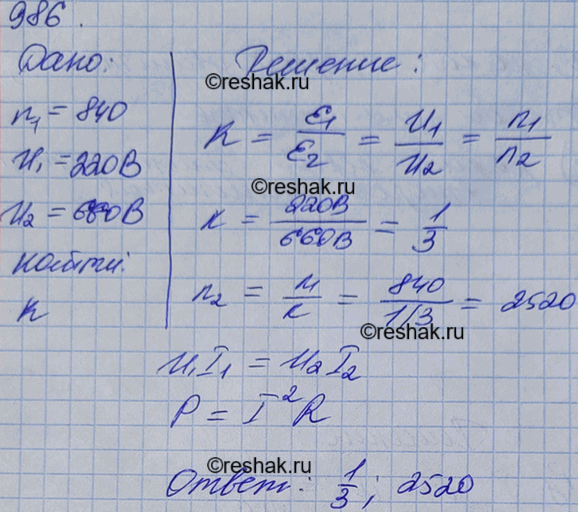 986.
Дано:
n₁ = 840
U₁ = 220В
U₂ = 660В
найти:
K
Решение:
©reshak.ru
K = ε₁/ε₂ = U₁/U₂ = n₁/n₂
©reshak.ru
K = 220В/660В = 1/3
n₂ = n/K = 840/1/3 = 2520
©reshak.ru
U₁I₁ = U₂I₂
P = I²R
©reshak.ru
Ответ: 1/3; 2520